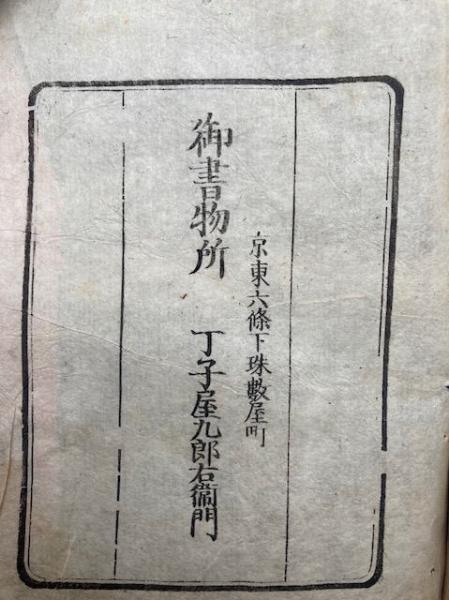 京東六條下珠數屋町
御書物所 丁子屋九郎右衞門